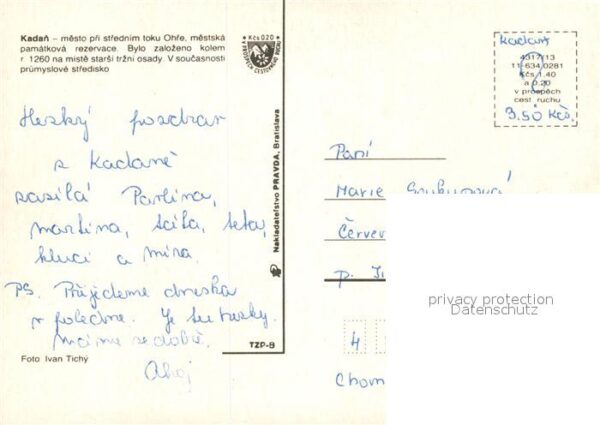 Kadaň – město při středním toku Ohře, městská
památková rezervace. Bylo založeno kolem
r. 1260 na místě starší tržní osady. V současnosti
průmyslové středisko
Kčs 0.20
Nakladatelství PRAVDA, Bratislava
TZP-8
Foto Ivan Tichý
Kadaň
4317/13
11-634 0281
Kčs 1.40
a 0.20
v prospěch
cest. ruchu
3.50 Kčs.
Hezký pozdrav
z Kadaně
zasílá Pavlína,
martina, teta,
kluci a míra.
PS. Přijedeme dneska
v poledne. Je tu hezky.
máme se dobře.
Ahoj
Paní
Marie
Červe
p.
4
Chom
privacy protection
Datenschutz